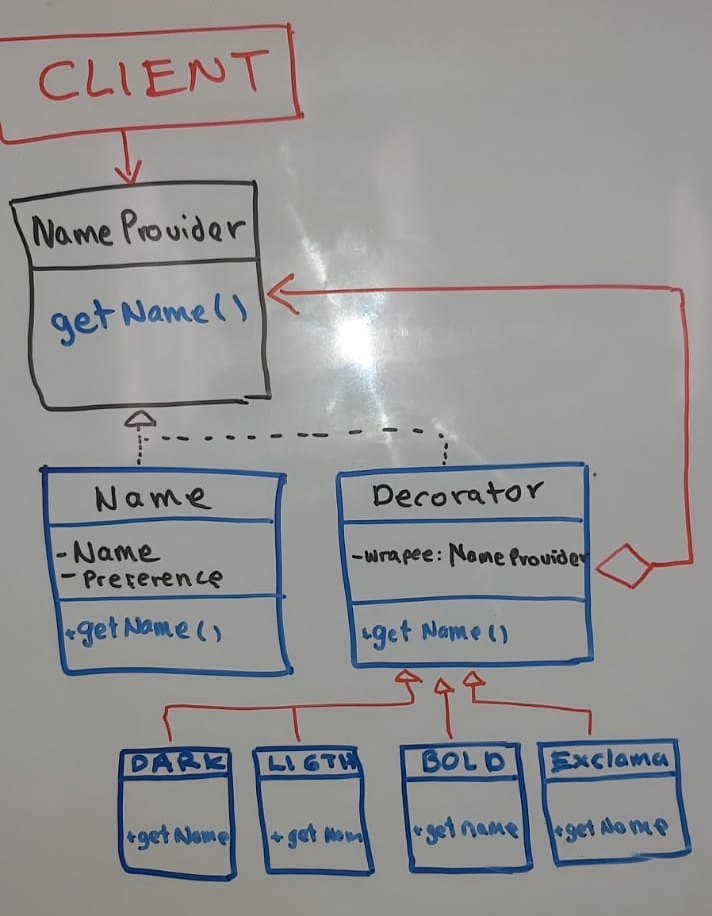 CLIENT
NameProvider
getName()
Name
-Name
-Preference
+getName()
Decorator
-wrapee: NameProvider
+get Name()
DARK
+getName
LIGTH
+get Nam
BOLD
+getname
Exclama
+getName